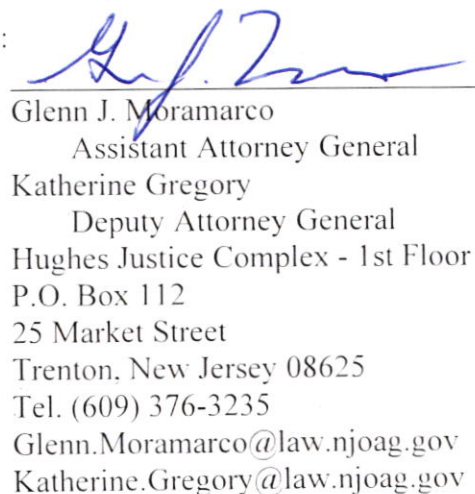 :
Glenn J. Moramarco
Assistant Attorney General
Katherine Gregory
Deputy Attorney General
Hughes Justice Complex - 1st Floor
P.O. Box 112
25 Market Street
Trenton, New Jersey 08625
Tel. (609) 376-3235
Glenn.Moramarco@law.njoag.gov
Katherine.Gregory@law.njoag.gov